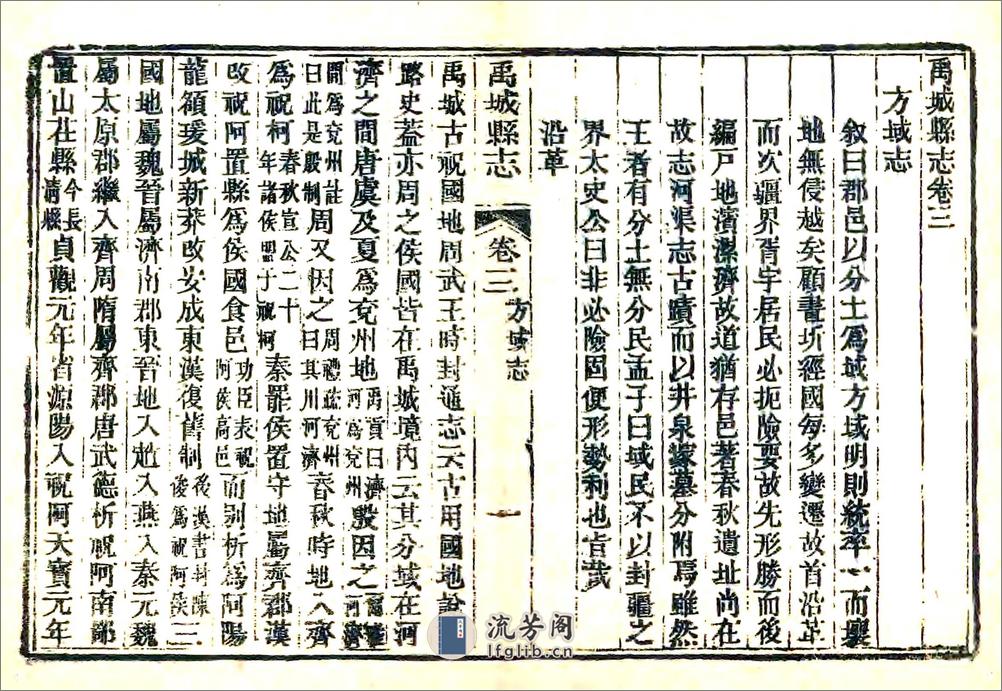 禹城縣志卷三
方域志
敘曰郡邑以分土爲域方域明則統率一而壤
地無侵越矣顧畫圻經國每多變遷故首沿革
而次疆界胥宇居民必扼險要故先形勝而後
編戸地濱漯濟故道猶存邑著春秋遺址尚在
故志河渠志古蹟而以井泉塚墓分附焉雖然
王者有分土無分民孟子曰域民不以封疆之
界太史公曰非必險固便形勢利也旨哉
沿革
禹城縣志 卷三 方域志 一
禹城古祝國地周武王時封通志云古用國地說
路史蓋亦周之侯國皆在禹城境內云其分域在河
濟之間唐虞及夏爲兗州地禹貢曰濟河爲兗州殷因之爾雅濟河
間爲兗州註曰此是殷制周又因之周禮疏兗州曰其川河濟春秋時地入齊
爲祝柯春秋宣公二十年諸侯盟于祝柯秦罷侯置守地屬齊郡漢
改祝阿置縣爲侯國食邑功臣表祝阿侯高邑而别析爲阿陽
龍頟瑗城新莽改安成東漢復舊制後漢書封陳俊爲祝阿侯三
國地屬魏晉屬濟南郡東晉地入趙入燕入秦元魏
屬太原郡繼入齊周隋屬齊郡唐武德析祝阿南鄙
置山茌縣今長清縣貞觀元年省源陽入祝阿天寶元年
流芳阁
lfglib.cn